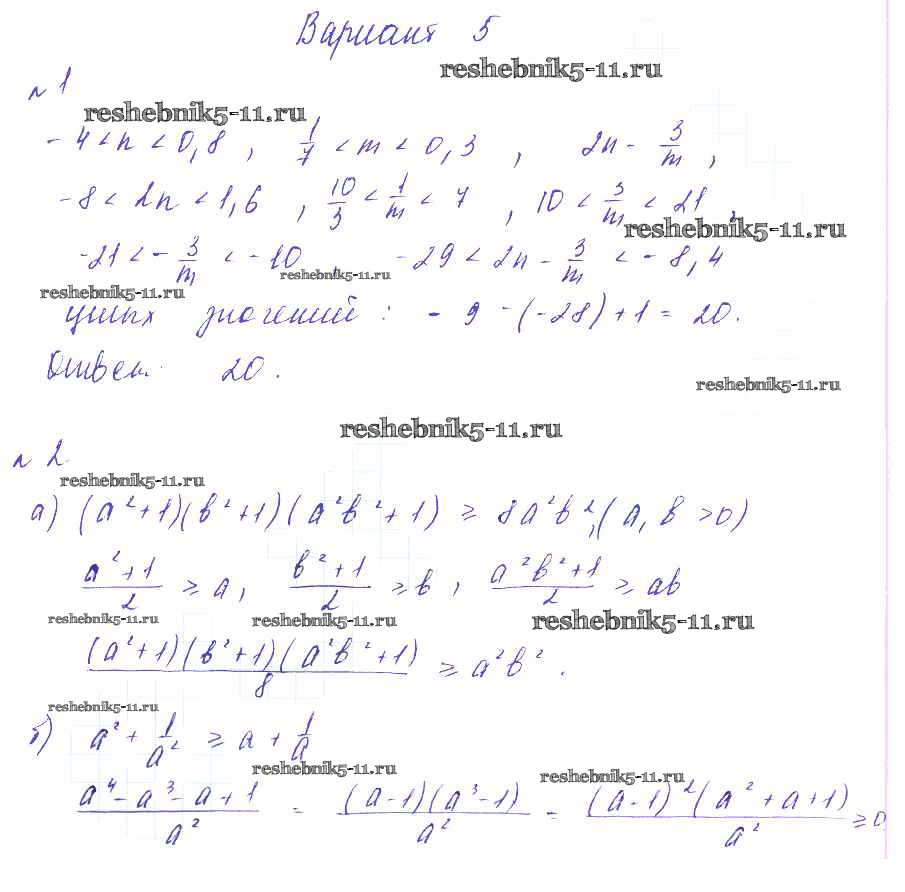 Вариант 5
reshebnik5-11.ru
№1
reshebnik5-11.ru
-4 < n < 0,8 , 1/7 < m < 0,3 , 2n - 3/m ,
-8 < 2n < 1,6 , 10/3 < 1/m < 7 , 10 < 3/m < 21 ,
reshebnik5-11.ru
-21 < - 3/m < -10 , -29 < 2n - 3/m < -8,4
reshebnik5-11.ru
reshebnik5-11.ru
целых значений: -9 -(-28)+1 = 20.
Ответ: 20.
reshebnik5-11.ru
reshebnik5-11.ru
№2
reshebnik5-11.ru
а) (a²+1)(b²+1)(a²b²+1) ≥ 8a²b², (a, b > 0)
(a²+1)/2 ≥ a, (b²+1)/2 ≥ b, (a²b²+1)/2 ≥ ab
reshebnik5-11.ru reshebnik5-11.ru reshebnik5-11.ru
(a²+1)(b²+1)(a²b²+1)/8 ≥ a²b².
reshebnik5-11.ru
б) a² + 1/a² ≥ a + 1/a
reshebnik5-11.ru reshebnik5-11.ru
(a⁴-a³-a+1)/a² = (a-1)(a³-1)/a² = (a-1)²(a²+a+1)/a² ≥ 0
reshebnik5-11.ru